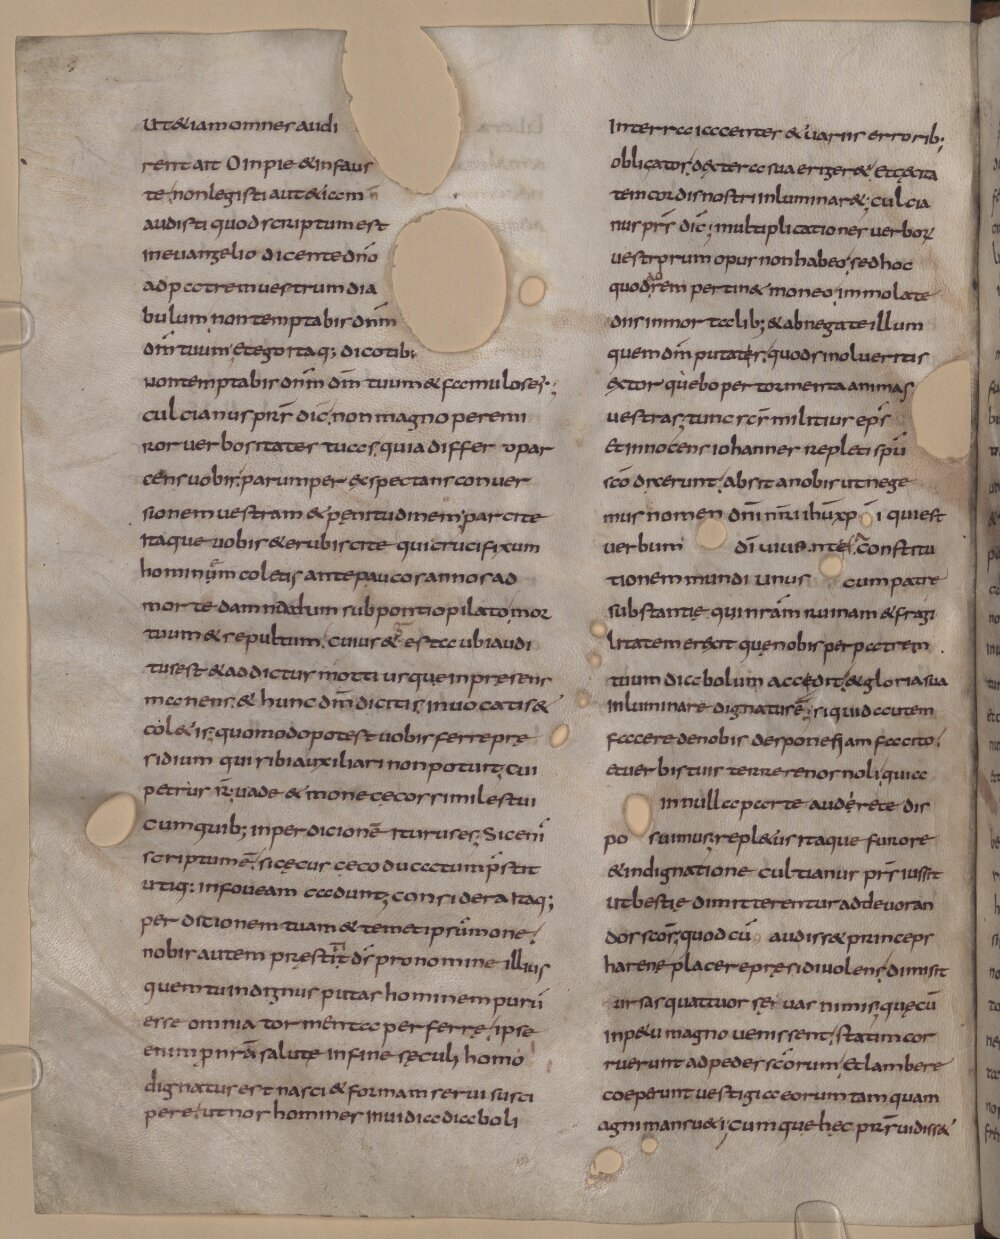 Ut &iam omnes audi
rent ait O inpie & infaus
te, non legisti aut &iam
audisti quod scriptum est
in euangelio dicente dno
ad patrem uestrum dia
bulum, non temptabis dnm
dm tuum, Et ego itaq; dico tibi
non temptabis dnm dm tuum & famulos ei;
culcianus prs dic, non magnopere mi
ror uerbositates tuas, quia differo par
cens uobis, parumper exspectans conuer
sionem uestram & penitudinem, parcite
itaque uobis & erubiscite qui crucifixum
hominem colitis ante paucos annos ad
morte damnatum sub pontio pilato, mor
tuum & sepultum, cuius & est acubi audi
tus est & addictus morti usque in presens
manens, & hunc dm dicitis, inuocatis &
col&is, quomodo potest uobis ferre pre
sidium qui sibi auxiliari non potuit, cui
petrus r, uade & mone cecos similes tui
cum quib; in perdicione iturus es, Sic eni
scriptum e, si cecus ceco ducatum prestit
utiq: in foueam cadunt, considera itaq;
perditionem tuam & temetipsu mone,
nobis autem prestitit ds pro nomine illius
quem tu indignus putas hominem puru
esse omnia tormenta perferre, ipse
enim p nra salute in fine seculi homo
dignatus est nasci & formam serui susci
pere, ut nos homines inuidia diaboli
Interra iacentes & uariis errorib;
obligatos dextera sua eriger&, Et c&a
tem cordis nostri inluminar&, culcia
nus prs dic, multiplicationes uerbor
uestrorum opus non habeo, sed hoc
quod ad rem pertin& moneo, immolate
diis inmortalib; & abnegate illum
quem dm putatis, quod si nolueritis
extorquebo per tormenta animas
uestras, tunc scs militius eps
Et innocens iohannes repleti spu
sco dixerunt, absit a nobis ut nege
mus nomen dni nri ihu xpi qui est
uerbum di uiui ante constitu
tionem mundi unus cum patre
substantie, qui nram ruinam & fragi
litatem erexit que nobis per patrem
tuum diabolum accedit, & gloria sua
inluminare dignatus e, si quid autem
facere de nobis desponesti iam facito,
et uerbis tuis terrere nos noli, quia
in nulla parte audere te dis
po suimus, repl&us itaque furore
& indignatione cultianus prs iussit
ut bestie dimitterentur ad deuoran
dos scos, quod cu audiss& princeps
harene placere presidi uolens, dimisit
ursas quattuor seuas nimis, que cu
inp&u magno uenissent, statim cor
ruerunt ad pedes scorum, Et lambere
coeperunt uestigia eorum tamquam
agni mansu&i, cumque hec prs uidiss&